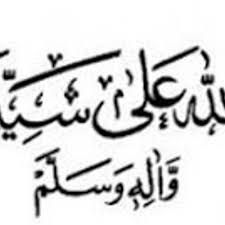 لله عَلَى سَيِّ
وَّآلِهٖ وَسَلَّمْ